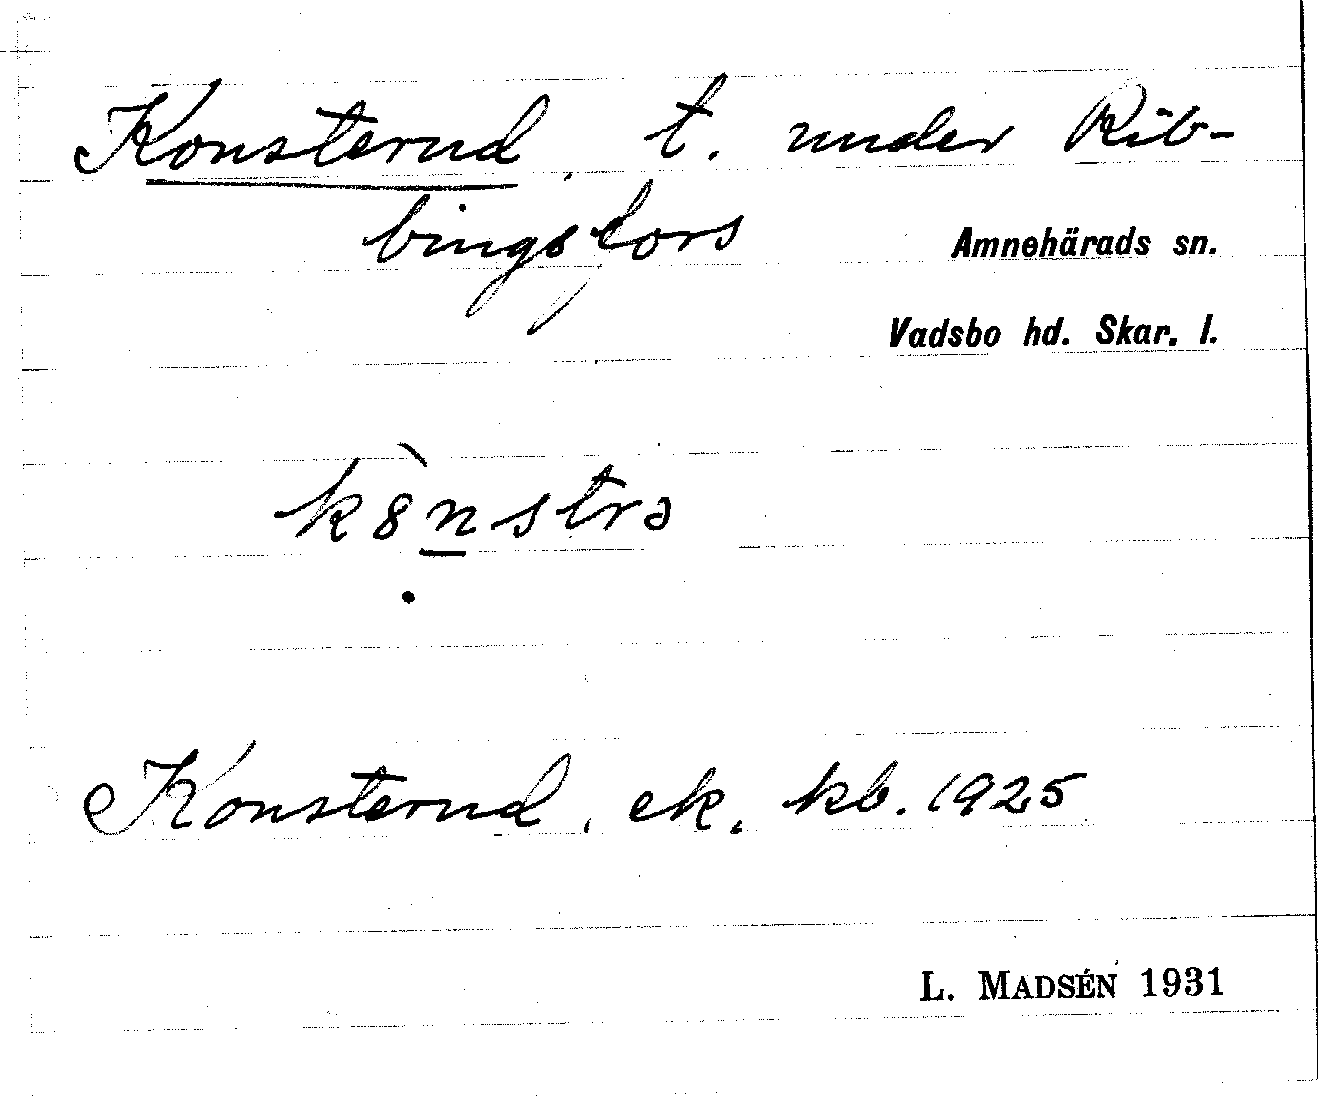 Konsterud, t. under Rib-
bingsfors
Amnehärads sn.
Vadsbo hd. Skar. l.
k8̀nstrə
Konsterud, ek. kb. 1925
L. MADSÉN 1931